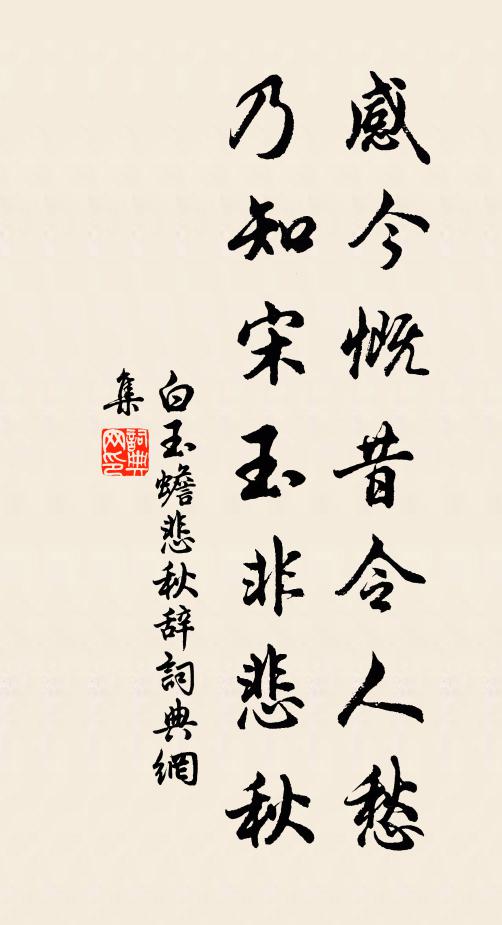 感今慨昔令人愁
乃知宋玉非悲秋
白玉蟾悲秋辞詞典網
集
詞典
网印